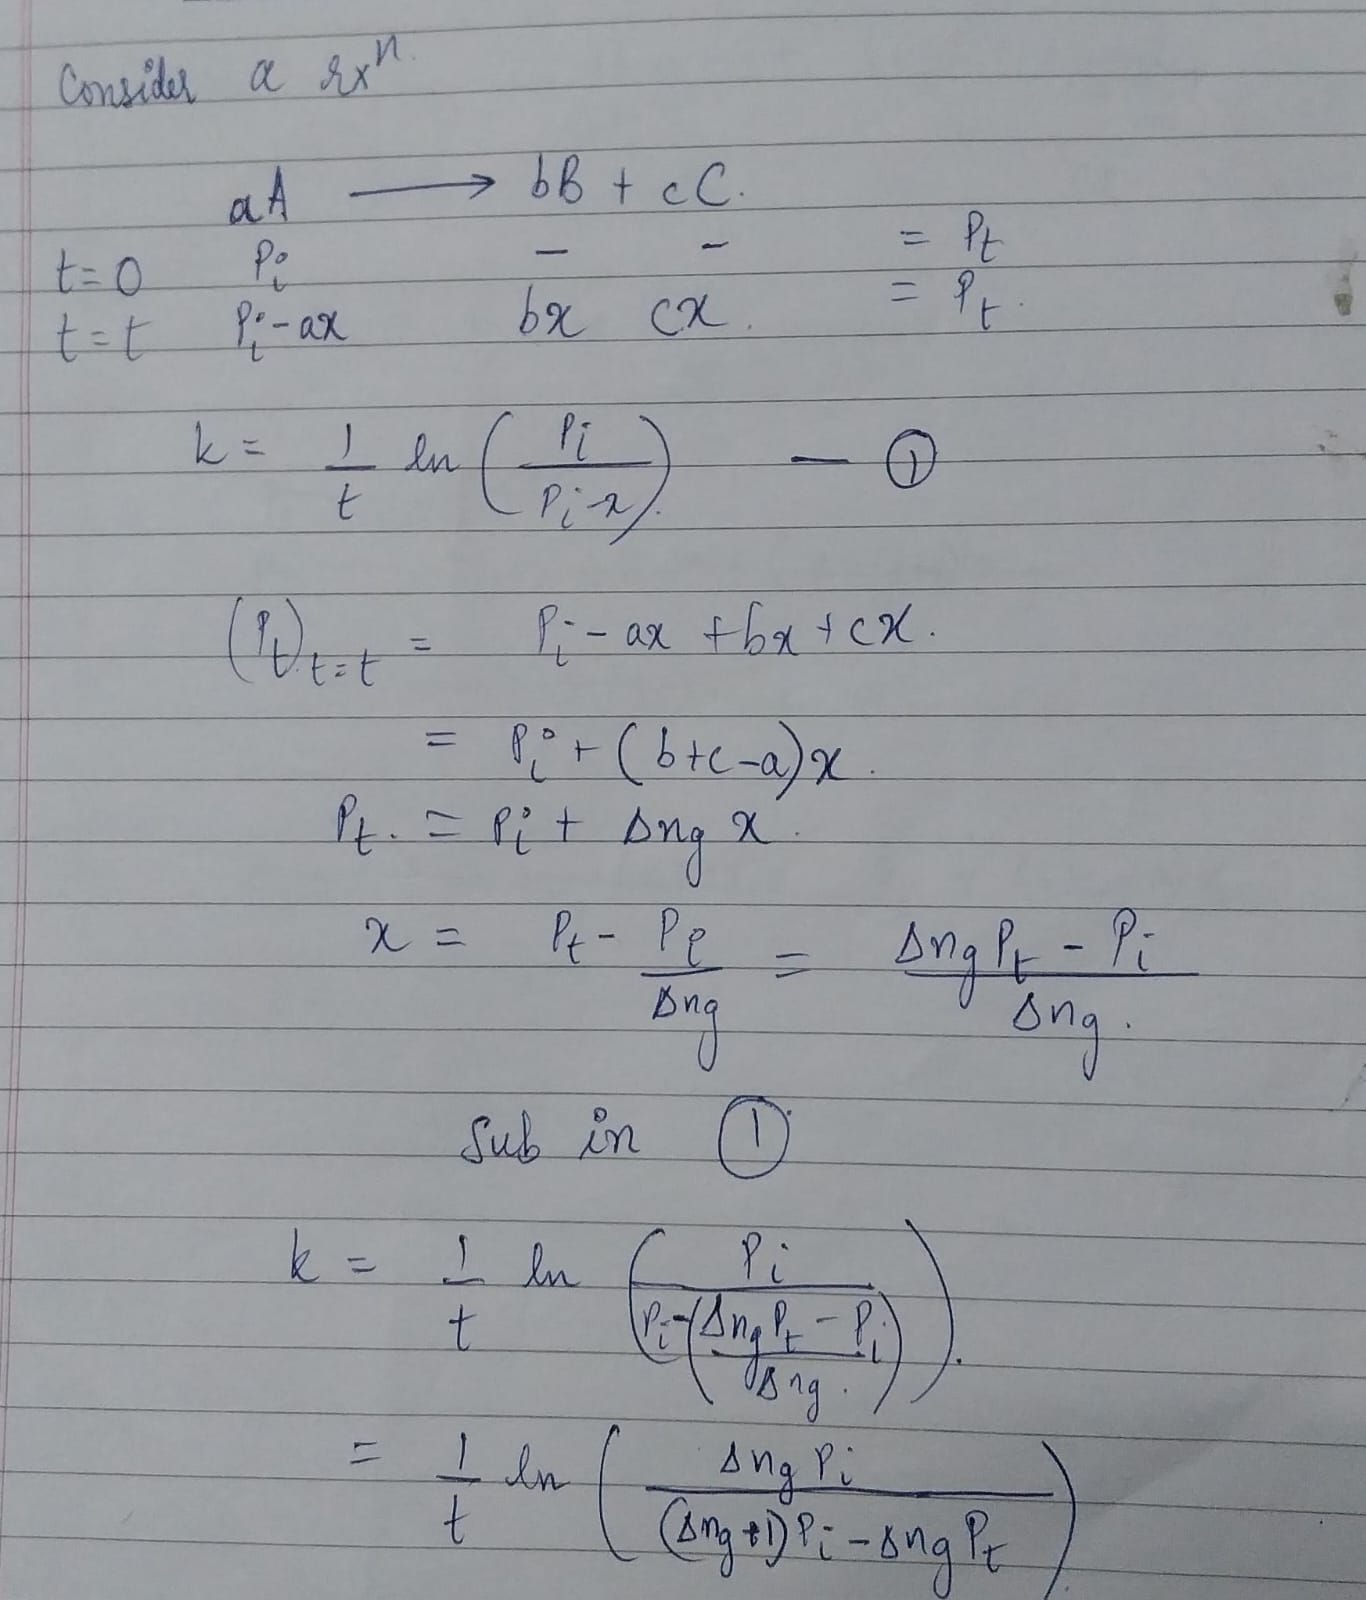 Consider a rxⁿ.
aA ⟶ bB + cC.
t=0 Pi – – = Pt
t=t Pi-ax bx cx. = Pt.
k = 1/t ln (Pi/(Pi-x)). — ①
(Pt)t=t = Pi - ax + bx + cx.
= Pi + (b+c-a)x.
Pt. = Pi + Δng x.
x = Pt - Pi/Δng = (Δng Pt - Pi)/Δng.
Sub in ①
k = 1/t ln (Pi/(Pi-((Δng Pt - Pi)/Δng.))).
= 1/t ln (Δng Pi/((Δng+1)Pi - Δng Pt)).